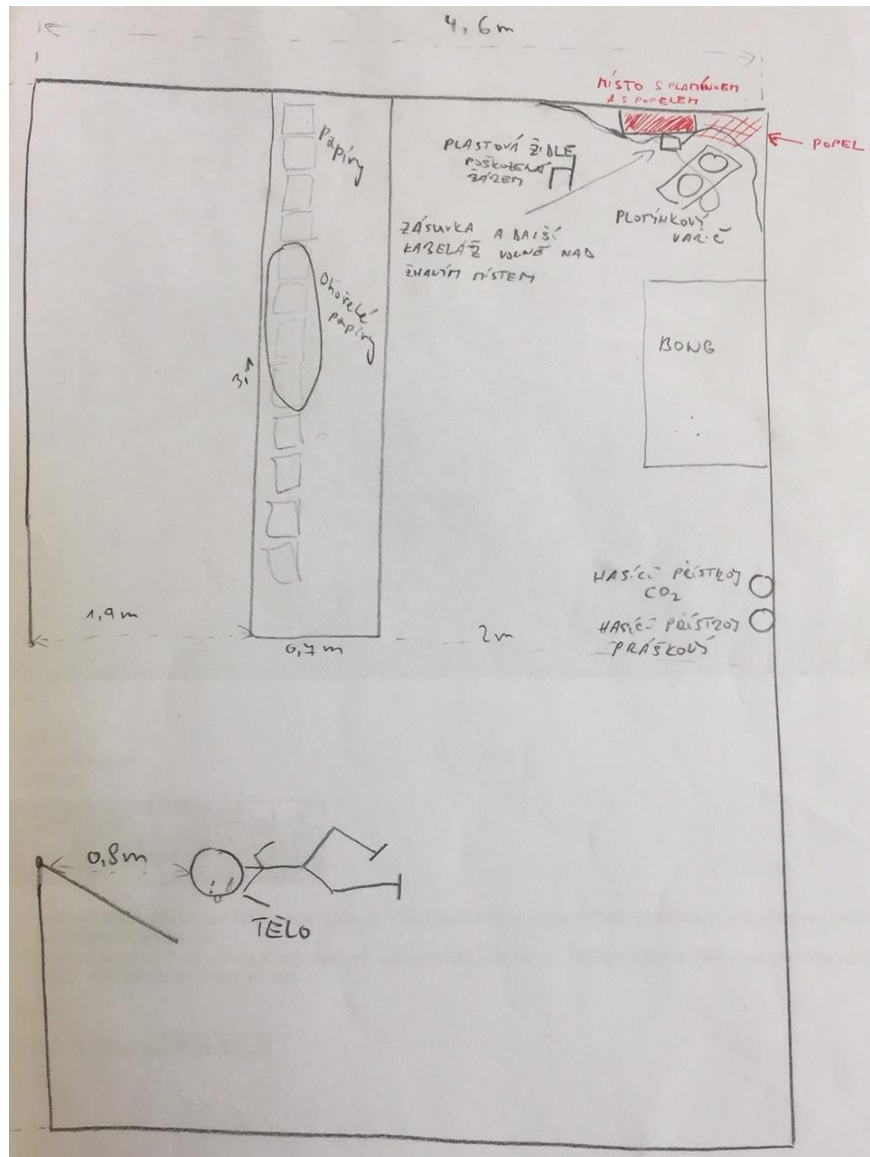 4,6m
MÍSTO S PLAMÍNKEM
A S POPELEM
POPEL
Papíry
PLASTOVÁ ŽIDLE
POŠKOZENÁ
ŽÁREM
ZÁSUVKA A DALŠÍ
KABELÁŽ VOLNĚ NAD
ŽHAVÍM MÍSTEM
PLOTÝNKOVÝ
VAŘIČ
Ohořelé
papíry
BONG
HASÍCÍ PŘÍSTROJ
CO2
HASÍCÍ PŘÍSTROJ
PRÁŠKOVÝ
1,9m
0,7m
2m
0,8m
TĚLO